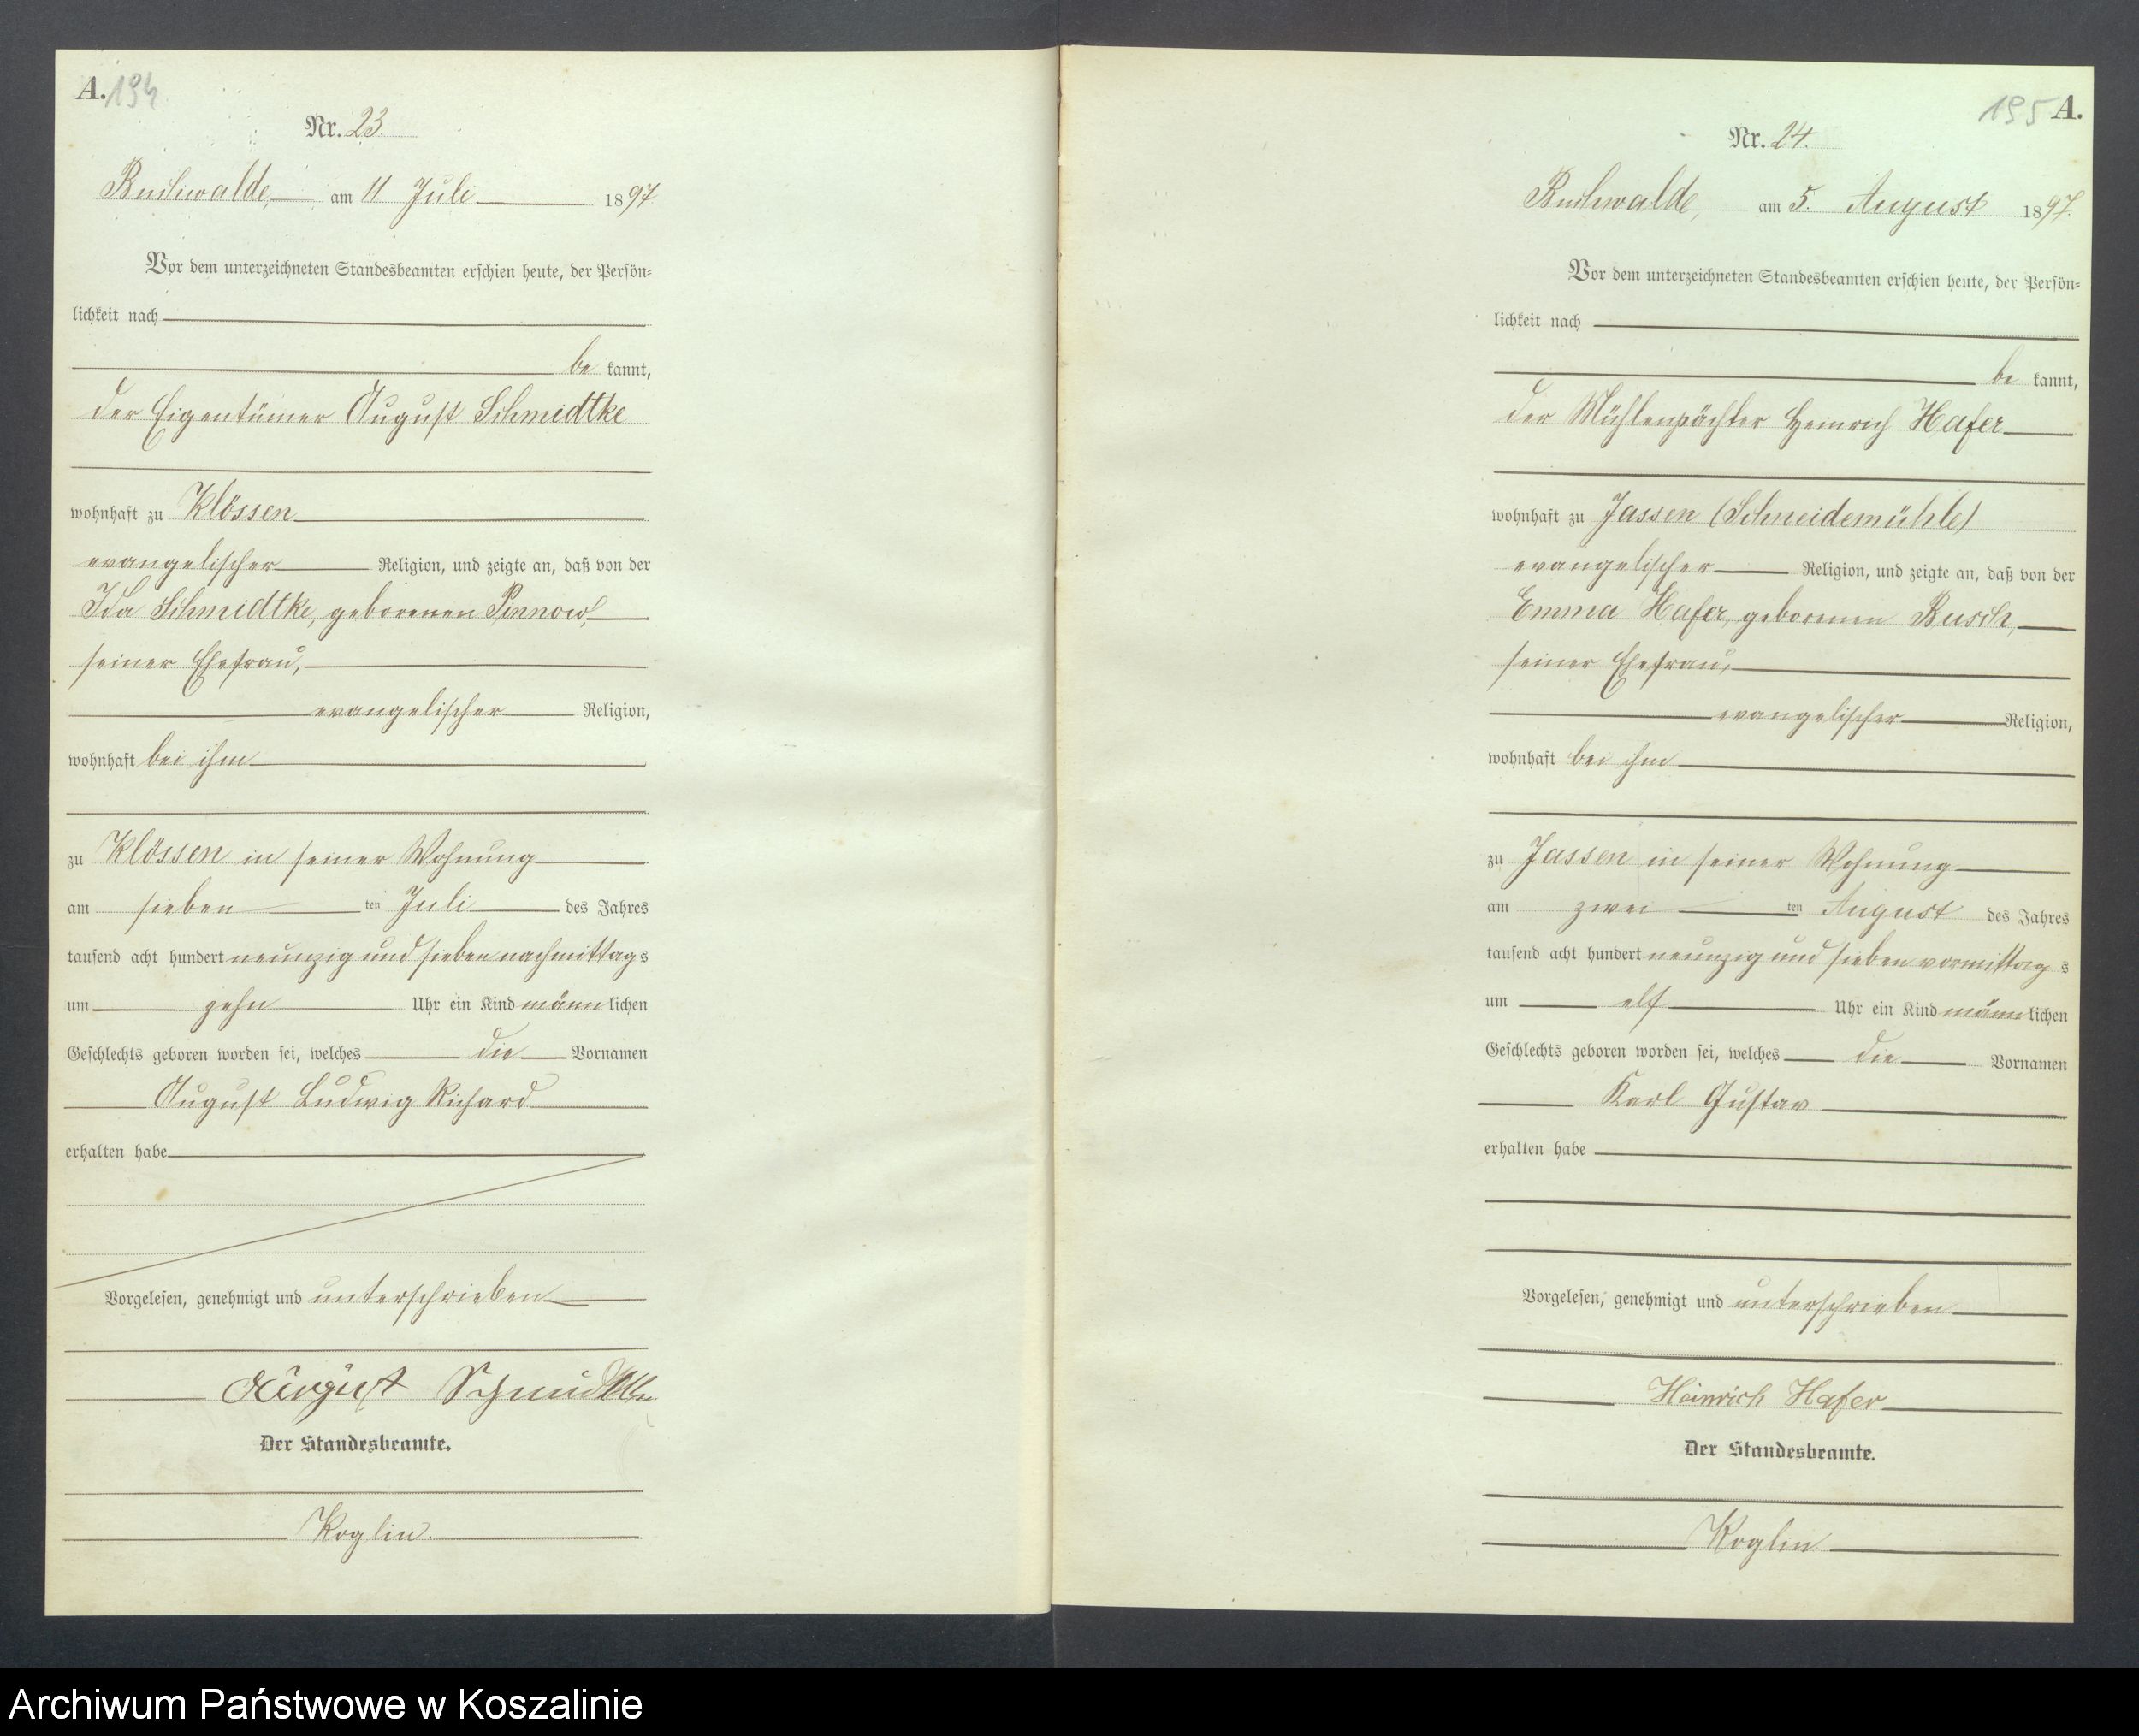 A. 194
Nr. 23.
Buchwalde, am 11 Juli 1897
Vor dem unterzeichneten Standesbeamten erschien heute, der Persön-
lichkeit nach
be kannt,
der Eigentümer August Schmidtke
wohnhaft zu Klössen
evangelischer Religion, und zeigte an, daß von der
Ida Schmidtke, geborenen Pinnow,
seiner Ehefrau,
evangelischer Religion,
wohnhaft bei ihm
zu Klössen in seiner Wohnung
am sieben ten Juli des Jahres
tausend acht hundert neunzig und sieben nachmittags
um zehn Uhr ein Kind männlichen
Geschlechts geboren worden sei, welches die Vornamen
August Ludwig Richard
erhalten habe
Vorgelesen, genehmigt und unterschrieben
August Schmidtke
Der Standesbeamte.
Koglin.
195 A.
Nr. 24.
Buchwalde, am 5. August 1897.
Vor dem unterzeichneten Standesbeamten erschien heute, der Persön-
lichkeit nach
be kannt,
der Mühlenpächter Heinrich Hafer
wohnhaft zu Jassen (Schneidemühle)
evangelischer Religion, und zeigte an, daß von der
Emma Hafer, geborenen Busch,
seiner Ehefrau,
evangelischer Religion,
wohnhaft bei ihm
zu Jassen in seiner Wohnung
am zwei ten August des Jahres
tausend acht hundert neunzig und sieben vormittags
um elf Uhr ein Kind männlichen
Geschlechts geboren worden sei, welches die Vornamen
Karl Gustav
erhalten habe
Vorgelesen, genehmigt und unterschrieben
Heinrich Hafer
Der Standesbeamte.
Koglin
Archiwum Państwowe w Koszalinie